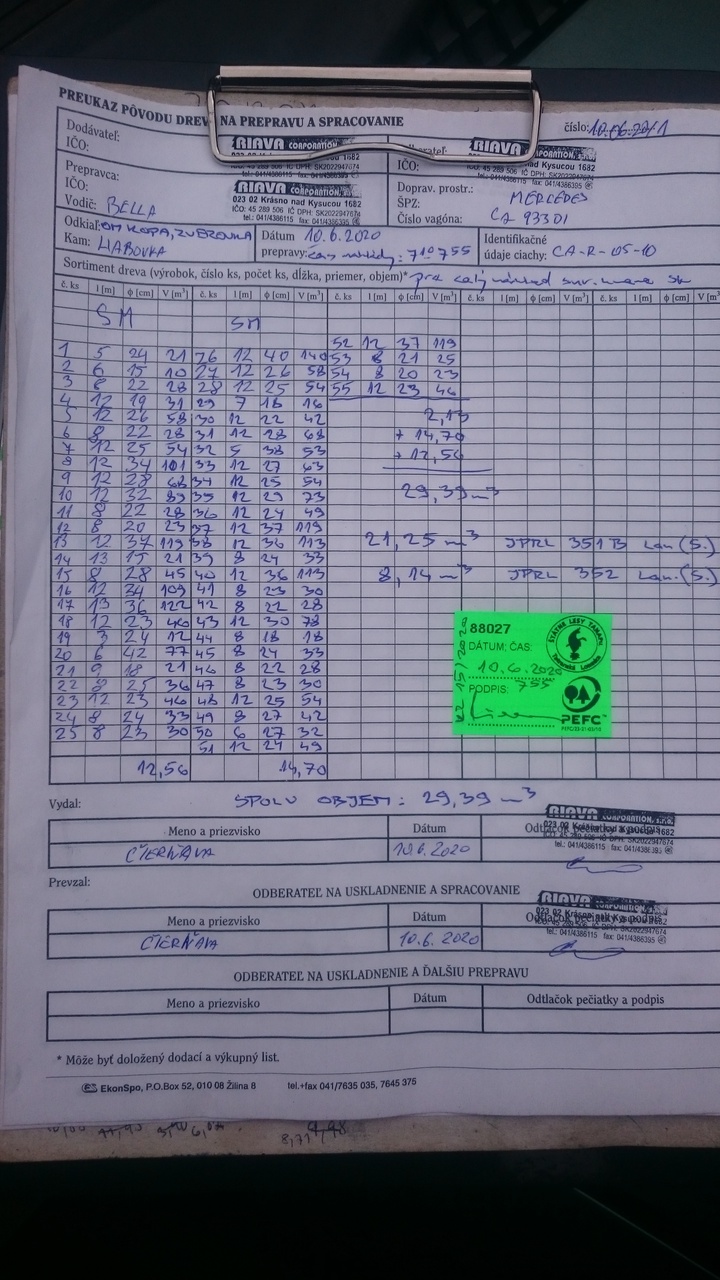 PREUKAZ PÔVODU DREV NA PREPRAVU A SPRACOVANIE
číslo: 10.06.20/1
Dodávateľ:
IČO:
RIAVA CORPORATION
IČO:
RIAVA
Prepravca:
IČO:
Vodič: BELLA
RIAVA CORPORATION, s.r.o.
023 02 Krásno nad Kysucou 1682
IČO: 45 289 506 IČ DPH: SK2022947674
tel.: 041/4386115 fax: 041/4386395
Doprav. prostr.: MERCEDES
ŠPZ:
Číslo vagóna: CA 933 DI
Odkiaľ: KOPA, ZVEROVKA
Kam: HABOVKA
Dátum 10.6.2020
prepravy: čas nakládky: 710 755
Identifikačné
údaje ciachy: CA-R-05-10
Sortiment dreva (výrobok, číslo ks, počet ks, dĺžka, priemer, objem)* pre celý náklad
č. ks l [m] ϕ [cm] V [m³] č. ks l [m] ϕ [cm] V [m³] č. ks l [m] ϕ [cm] V [m³] č. ks l [m] ϕ [cm] V [m³] č. ks l [m] ϕ [cm] V [m³]
SM SM
52 12 37 119
1 5 24 21 26 12 40 140 53 8 21 25
2 6 15 10 27 12 26 58 54 8 20 23
3 8 22 28 28 12 25 54 55 12 23 46
4 12 19 31 29 7 18 16
5 12 26 58 30 12 22 42 2,13
6 8 22 28 31 12 28 68 + 14,70
7 12 25 54 32 5 38 53 + 12,56
8 12 34 101 33 12 27 63
9 12 28 68 34 12 25 54 29,39 m³
10 12 32 89 35 12 29 73
11 8 22 28 36 12 24 49
12 8 20 23 37 12 37 119
13 12 37 119 38 12 36 113 21,25 m³ JPRL 351 B Lan. (S.)
14 13 15 21 39 8 24 33
15 8 28 45 40 12 36 113 8,14 m³ JPRL 352 Lan. (S.)
16 12 34 109 41 8 23 30
17 13 36 122 42 8 22 28
18 12 23 46 43 12 30 78
19 3 24 12 44 8 18 18
20 6 42 77 45 8 24 33
21 9 18 21 46 8 22 28
22 8 25 36 47 8 23 30
23 12 23 46 48 12 25 54
24 8 24 33 49 8 27 42
25 8 23 30 50 6 27 32
51 12 24 49
12,56 14,70
88027
DÁTUM; ČAS:
10.6.2020
PODPIS: 755
ŠTÁTNE LESY TANAPu
Tatranská Lomnica
PEFC
Vydal:
SPOLU OBJEM: 29,39 m³
Meno a priezvisko Dátum Odtlačok pečiatky a podpis
ČIERŇAVA 10.6.2020
RIAVA CORPORATION, s.r.o.
023 02 Krásno nad Kysucou 1682
tel.: 041/4386115 fax: 041/4386395
Prevzal:
ODBERATEĽ NA USKLADNENIE A SPRACOVANIE
Meno a priezvisko Dátum Odtlačok pečiatky a podpis
ČIERŇAVA 10.6.2020
RIAVA CORPORATION, s.r.o.
023 02 Krásno nad Kysucou 1682
IČ DPH: SK2022947674
tel.: 041/4386115 fax: 041/4386395
ODBERATEĽ NA USKLADNENIE A ĎALŠIU PREPRAVU
Meno a priezvisko Dátum Odtlačok pečiatky a podpis
* Môže byť doložený dodací a výkupný list.
EkonSpo, P.O.Box 52, 010 08 Žilina 8 tel.+fax 041/7635 035, 7645 375